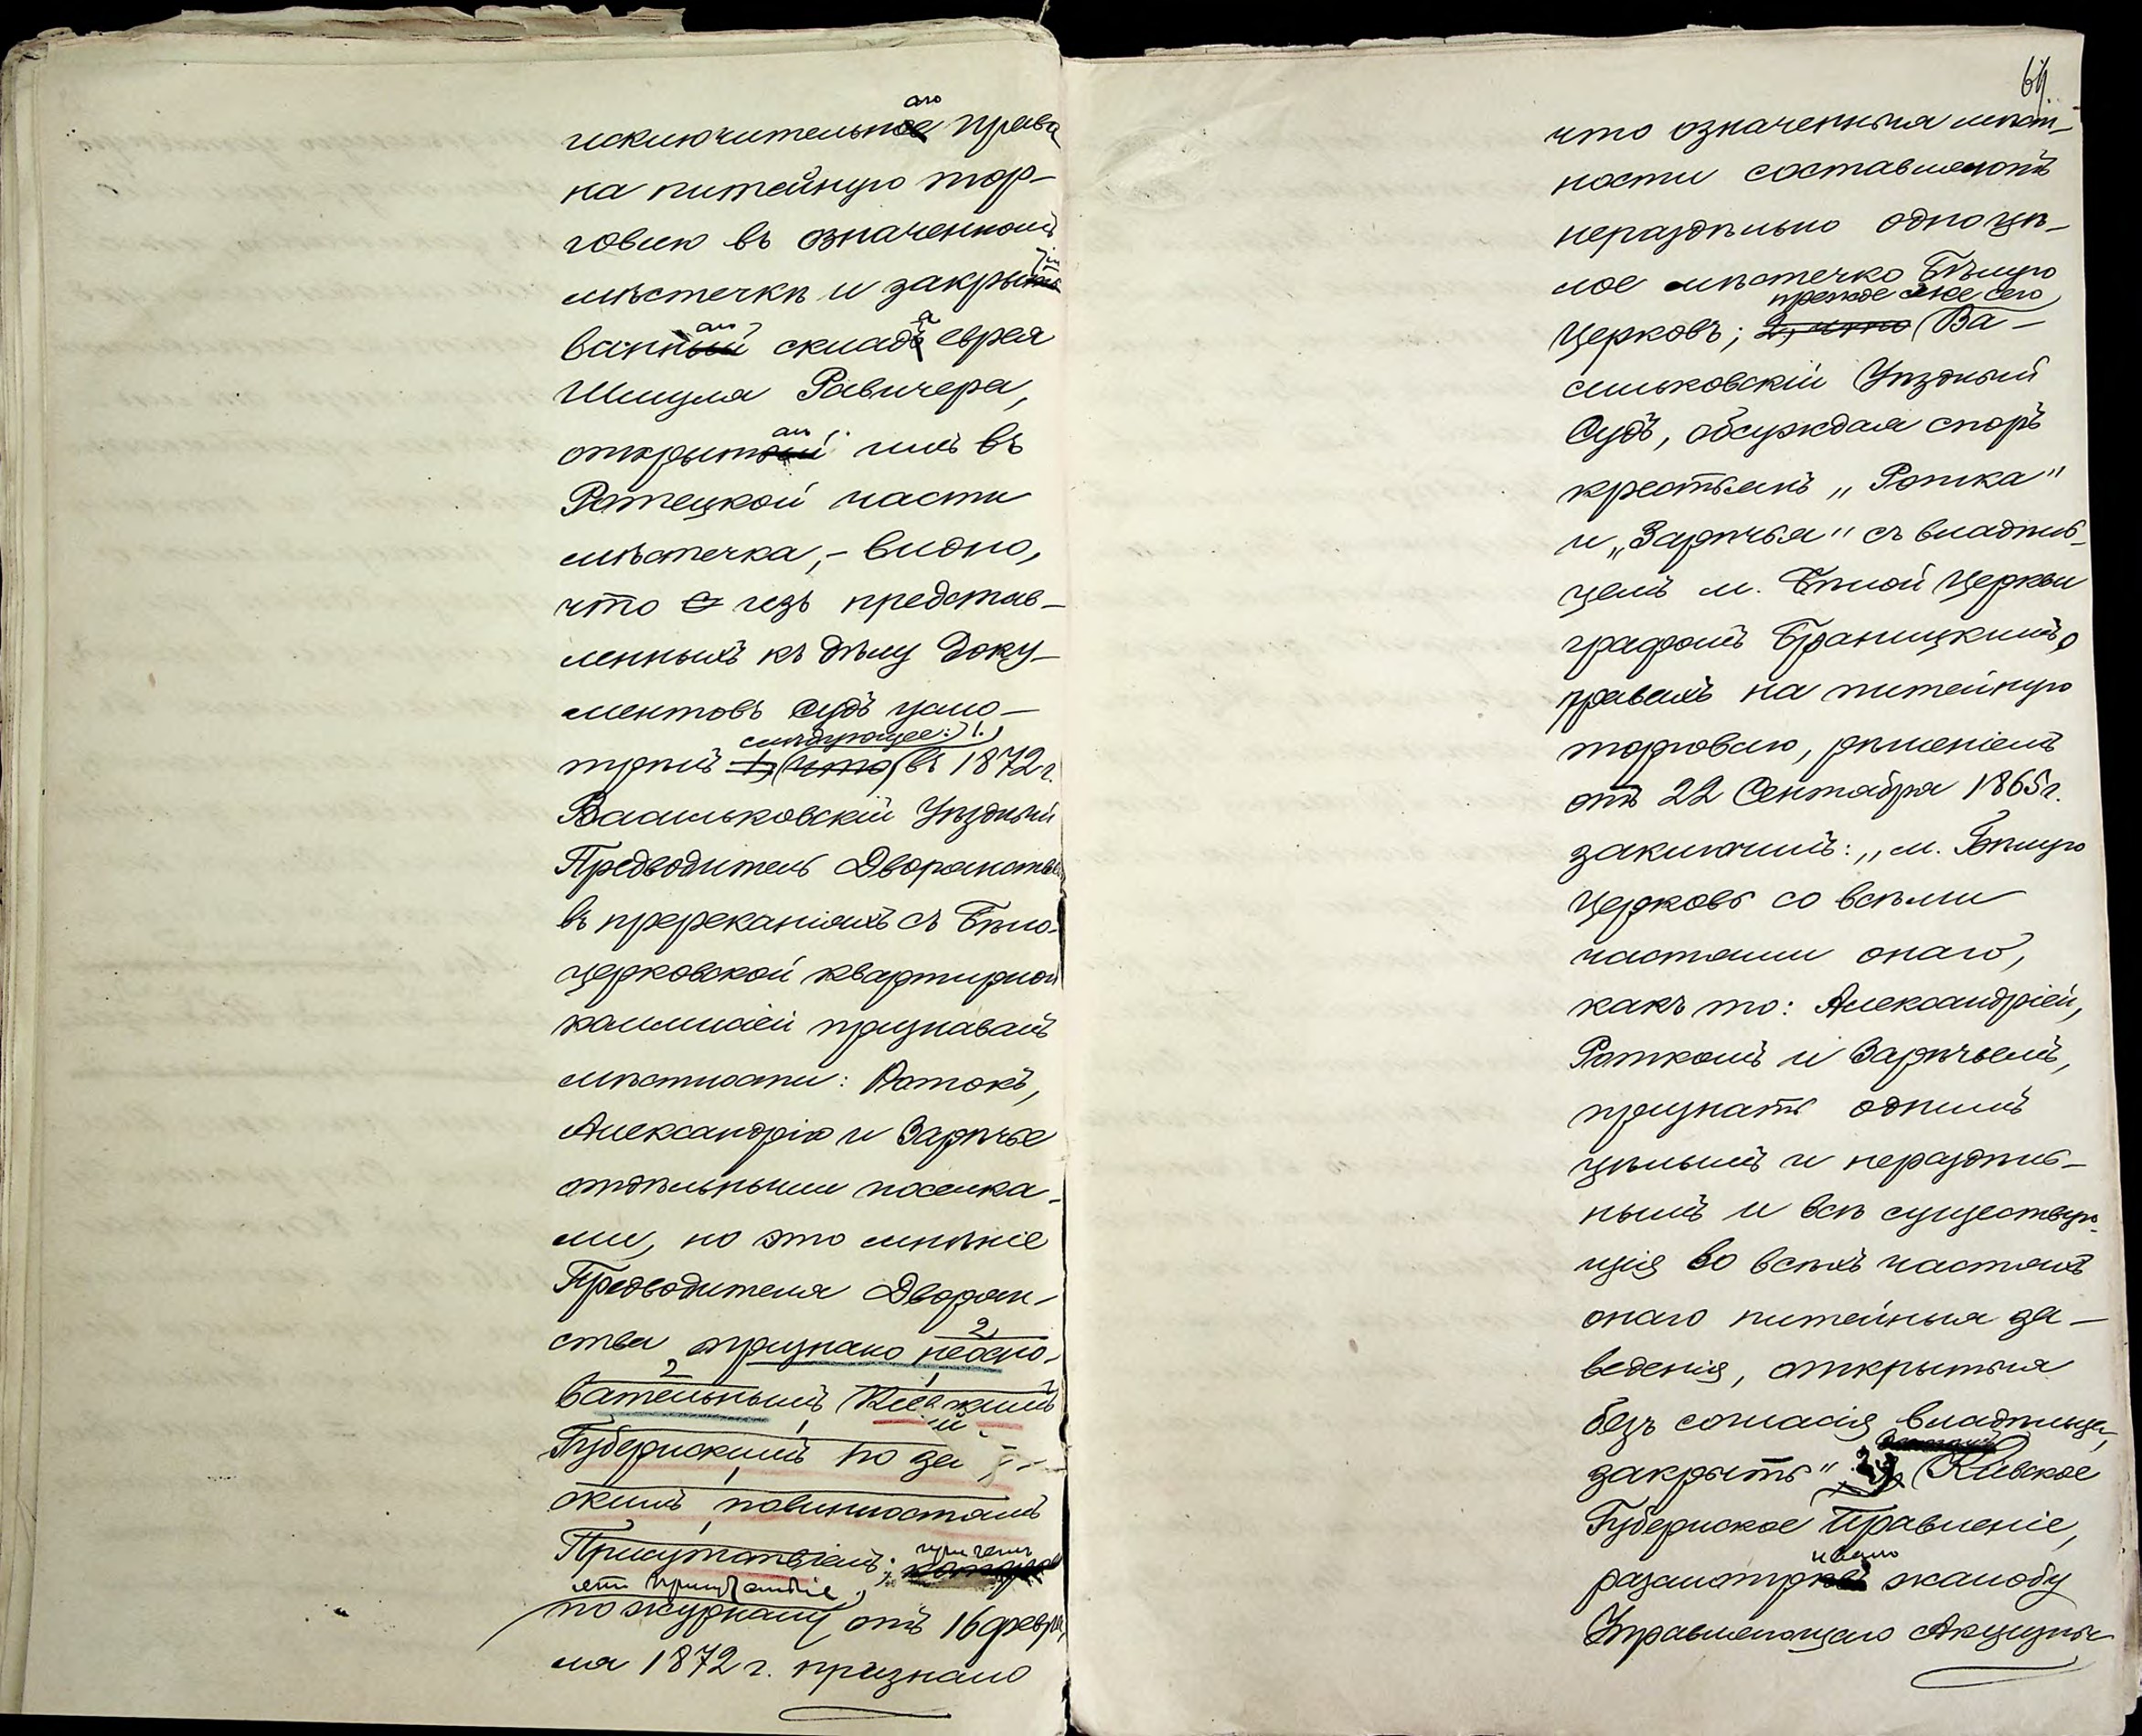 аго
исключительное права
на питейную тор-
говлю въ означенномъ
мѣстечкѣ и закрыть
аго а
ванный складъ еврея
Шмуля Равичера,
аго
открытый имъ въ
Ротецкой части
мѣстечка, - видно,
что изъ представ-
ленныхъ къ дѣлу доку-
ментовъ Судъ усмо-
слѣдующее: 1.,
трѣлъ 1, что въ 1872 г.
Васильковскій Уѣздный
Предводитель Дворянства
въ пререканіяхъ съ Бѣло-
церковской квартирной
коммисіей признавалъ
мѣстности: Ротокъ,
Александрію и Зарѣчье
отдѣльными поселка-
ми, но это мнѣніе
Предводителя Дворян-
2
ства признано неосно-
2
вательнымъ Кіевскимъ
Губернскимъ по
скимъ повинностямъ
Присутствіемъ; причемъ
это Присутствіе,
по журналу отъ 16 февра-
ля 1872 г. признало
64.
что означенныя мѣст-
ности составляютъ
нераздѣльно одно цѣ-
лое мѣстечко Бѣлую
прежде же сего
Церковь; 2, что Ва-
сильковскій Уѣздный
Судъ, обсуждая споръ
крестьянъ „Ротка"
и „Зарѣчья" съ владѣль-
цемъ м. Бѣлой Церкви
графомъ Браницкимъ о
правахъ на питейную
торговлю, рѣшеніемъ
отъ 22 Сентября 1865 г.
заключилъ: „м. Бѣлую
Церковь со всѣми
частями онаго,
какъ то: Александріей,
Роткомъ и Зарѣчьемъ,
признать однимъ
цѣлымъ и нераздѣль-
нымъ и всѣ существую-
щія во всѣхъ частяхъ
онаго питейныя за-
веденія, открытыя
безъ согласія владѣльца,
закрыть" 2, Кіевское
Губернское Правленіе,
разсмотрѣвъ жалобу
Управляющаго Акцизны-